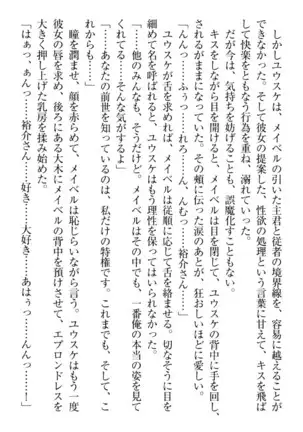 しかしユウスケは、メイベルの引いた主君と従者の境界線を、容易に越えることが
できなかった。そして彼女の提案した、性欲の処理という言葉に甘えて、キスを飛ば
して快楽をともなう行為を重ね、溺れていった。
だが今は、気持ちを妨げることも、誤魔化すこともない。
キスをしながら目を開けると、メイベルは目を閉じて、ユウスケの背中に手を回し、
されるがままになっていた。その頬に伝った涙のあとが、狂おしいほどに愛しい。
「んんっ……ふぅっ……れろ……ん、んむっ……裕介さん……」
ユウスケが舌を動かすと、メイベルは従順に応じて舌を絡ませる。切なそうに目を
細めて名を呼ばれると、ユウスケはもう理性を保ってはいられなかった。
「……他のみんなも、そうだけど。メイベルはその中でも、一番俺の本当の姿を見て
くれてる……そんな気がするよ」
「……あなたの前世を知っているのは、私だけの特権です。これまでも、そして、こ
れからも……」
瞳を潤ませ、顔を赤らめて、メイベルは恥じらいながら言う。ユウスケはもう一度
彼女の唇を求め、後ろにある大木にメイベルの背中を預けさせて、エプロンドレスを
大きく押し上げた乳房を揉み始めた。
「はぁっ、ぁんっ……裕介さん……好き……大好き……あはぁっ……んんっ……！」